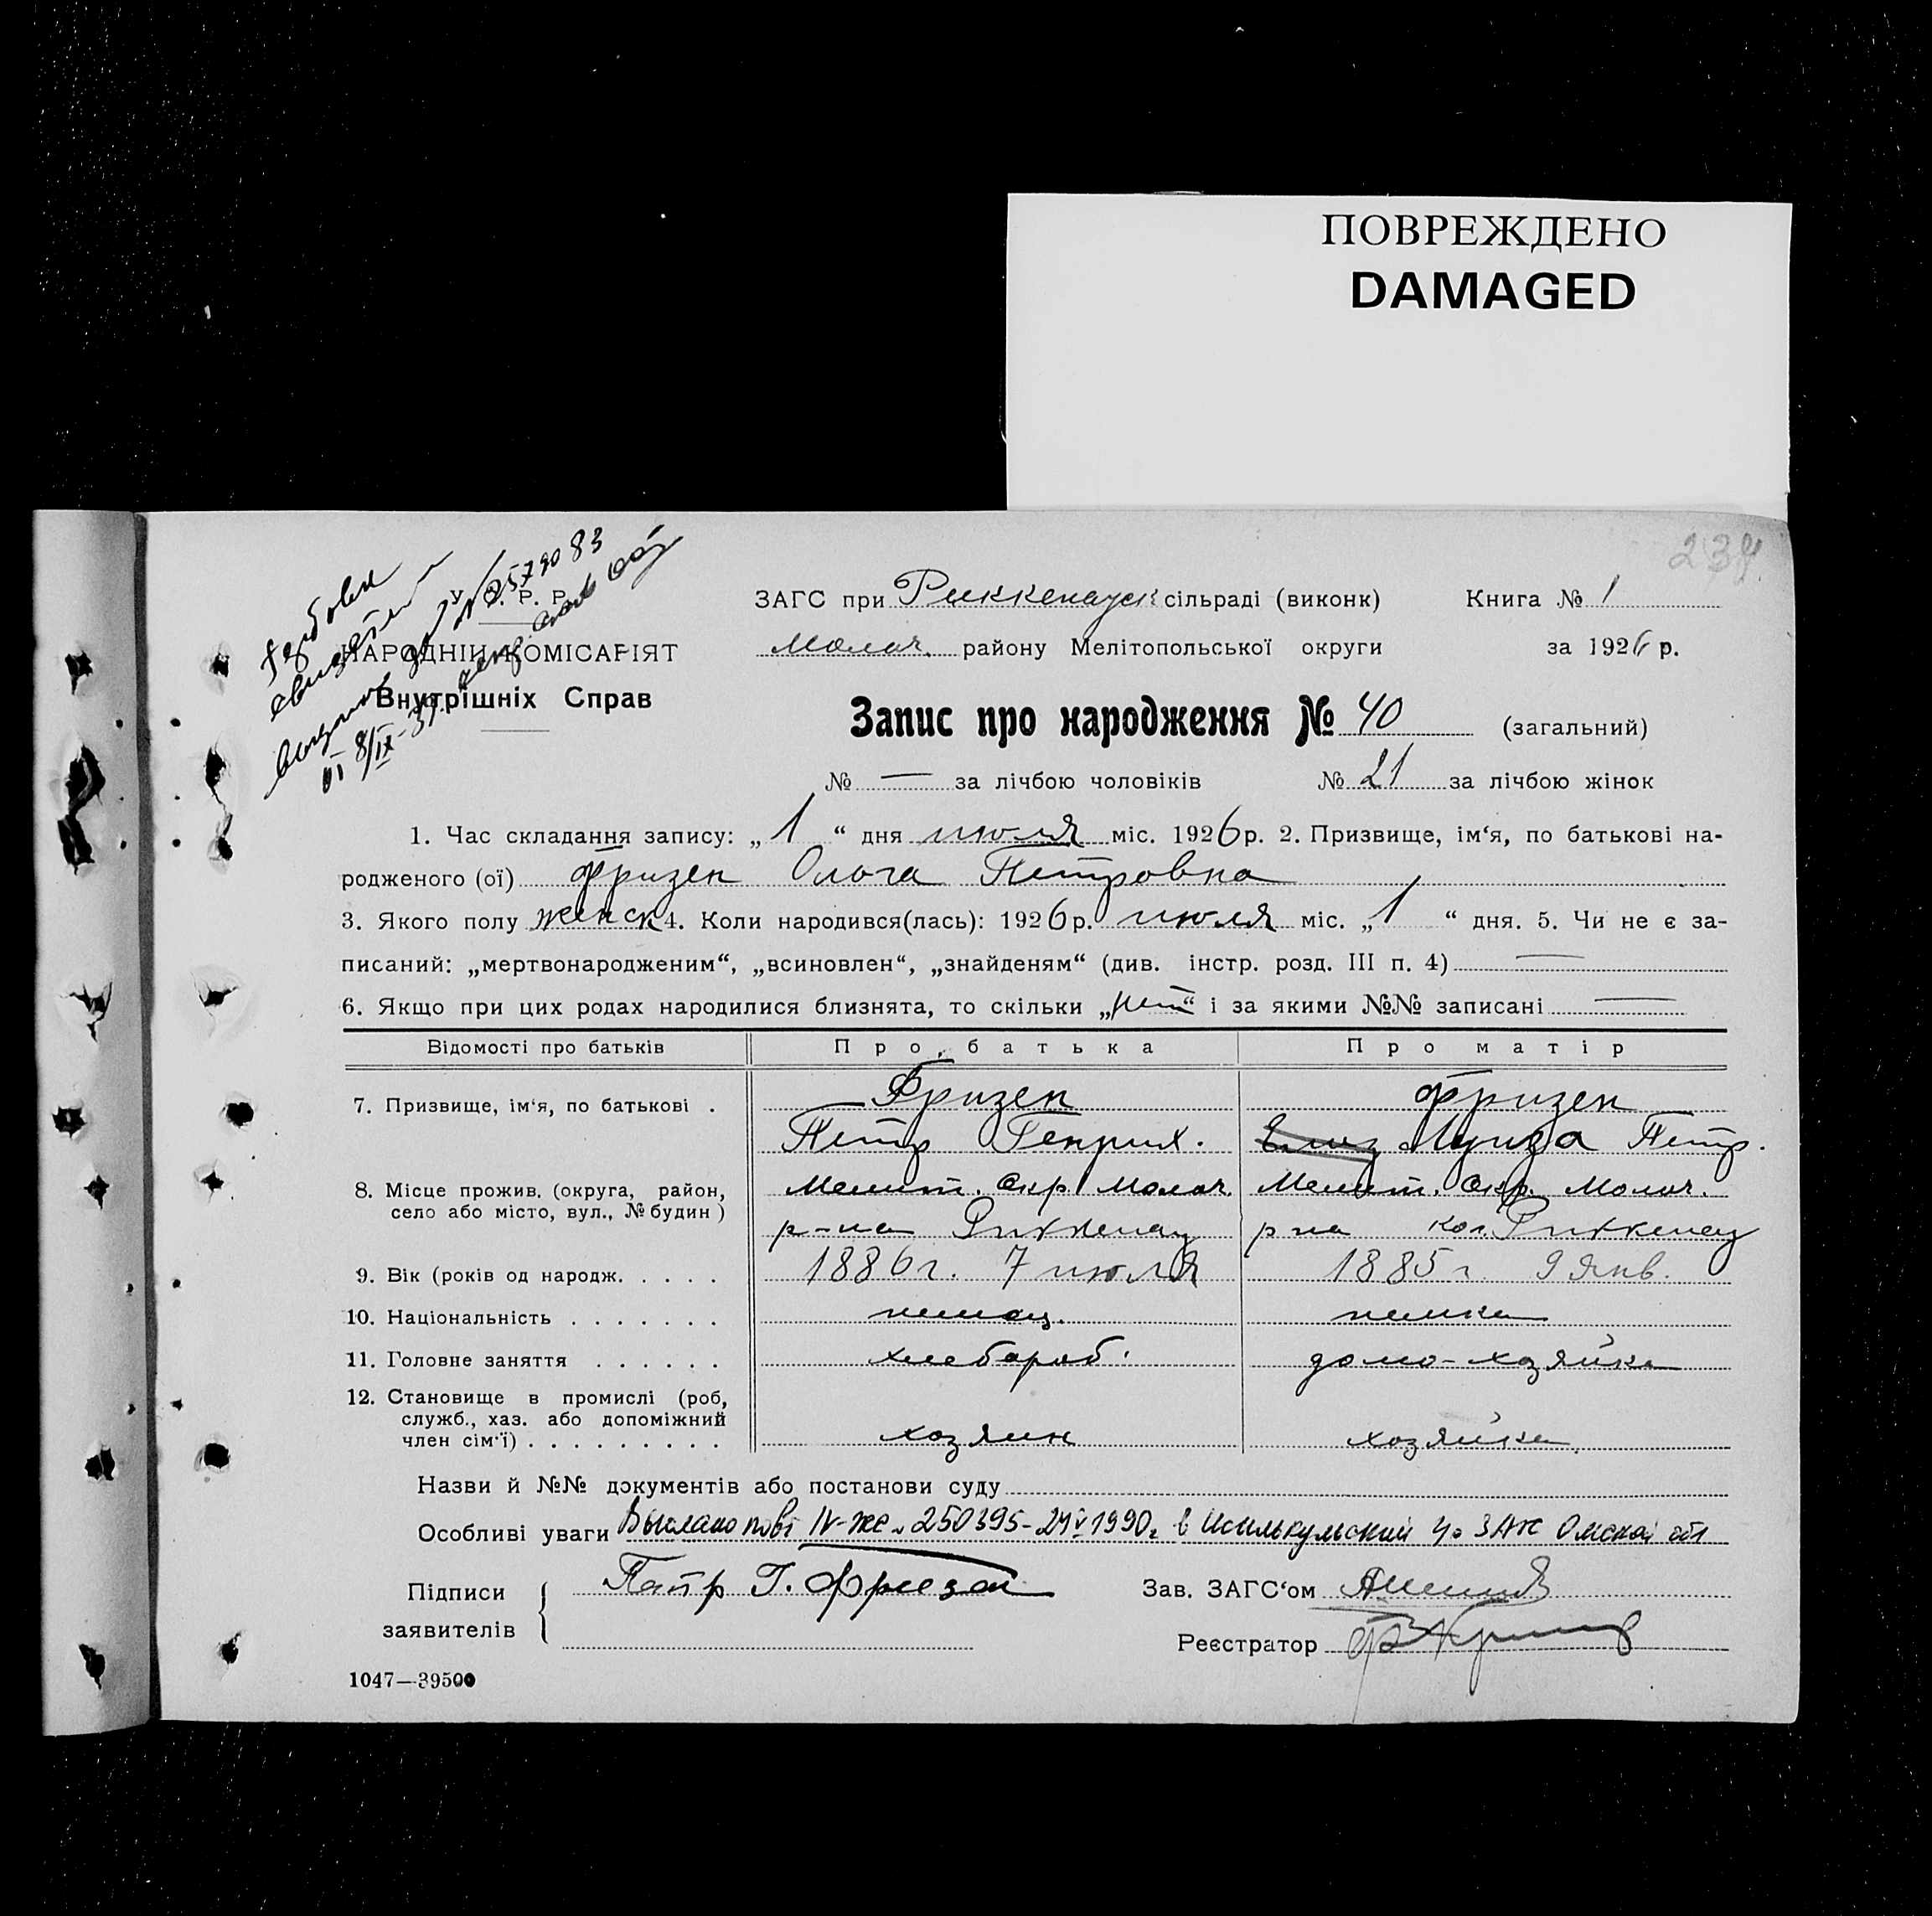 ПОВРЕЖДЕНО
DAMAGED
234
Гербовое
свидетел
выдано за № 2579083
от 8/IX-39.
У. С. Р. Р.
НАРОДНІЙ КОМІСАРІЯТ
Внутрішніх Справ
ЗАГС при Риккенауск сільраді (виконк) Книга № 1
Молоч. району Мелітопольської округи за 1926 р.
Запис про народження № 40 (загальний)
№ — за лічбою чоловіків № 21 за лічбою жінок
1. Час складання запису: „ 1 “ дня июля міс. 1926 р. 2. Призвище, ім‘я, по батькові на-
родженого (ої) Фризен Ольга Петровна
3. Якого полу женск 4. Коли народився(лась): 1926 р. июля міс. „ 1 “ дня. 5. Чи не є за-
писаний: „мертвонародженим“, „всиновлен“, „знайденям“ (див. інстр. розд. III п. 4) —
6. Якщо при цих родах народилися близнята, то скільки „нет“ і за якими №№ записані —
Відомості про батьків Про батька Про матір
7. Призвище, ім‘я, по батькові . Фризен Фризен
Петр Генрих. Елиз Луиза Петр.
8. Місце прожив. (округа, район, Мелит. окр. Молоч. Мелит. окр. Молоч.
село або місто, вул., № будин ) р-на Риккенау р-на кол. Риккенау
9. Вік (років од народж. . . . . 1886 г. 7 июля 1885 г. 9 янв.
10. Національність . . . . . . . немец. немка
11. Головне заняття . . . . . . хлебороб. домо-хозяйка
12. Становище в промислі (роб,
служб., хаз. або допоміжний
член сім‘ї) . . . . . . . . . хозяин хозяйка
Назви й №№ документів або постанови суду
Особливі уваги Выслано повт IV-ЖС № 250395 - 24 V 1990г в Исилькульский ЗАГС Омской обл
Підписи Петр Г. Фризен Зав. ЗАГС‘ом
заявителів Реєстратор
1047—39500